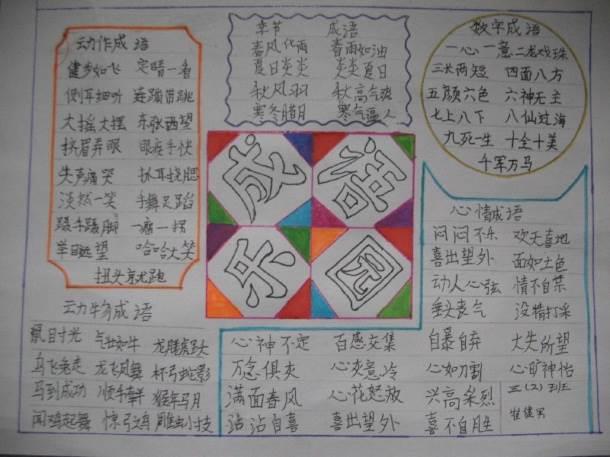 动作成语
健步如飞 定睛一看
侧耳细听 连蹦带跳
大摇大摆 东张西望
挤眉弄眼 眼疾手快
失声痛哭 抓耳挠腮
淡然一笑 手舞足蹈
蹑手蹑脚 一瘸一拐
举目远望 哈哈大笑
扭头就跑
季节 成语
春风化雨 春雨如油
夏日炎炎 炎炎夏日
秋风习习 秋高气爽
寒冬腊月 寒气逼人
数字成语
一心一意 二龙戏珠
三长两短 四面八方
五颜六色 六神无主
七上八下 八仙过海
九死一生 十全十美
千军万马
成语
乐园
动物成语
鼠目寸光 气壮如牛 龙腾虎跃
乌飞兔走 龙飞凤舞 杯弓蛇影
马到成功 顺手牵羊 猴年马月
闻鸡起舞 惊弓之鸟 雕虫小技
心情成语
闷闷不乐 欢天喜地
喜出望外 面如土色
动人心弦 情不自禁
垂头丧气 没精打采
心神不定 百感交集 自暴自弃 大失所望
万念俱灰 心灰意冷 心如刀割 心旷神怡
满面春风 心花怒放 兴高采烈
沾沾自喜 喜出望外 喜不自胜
三(2)班